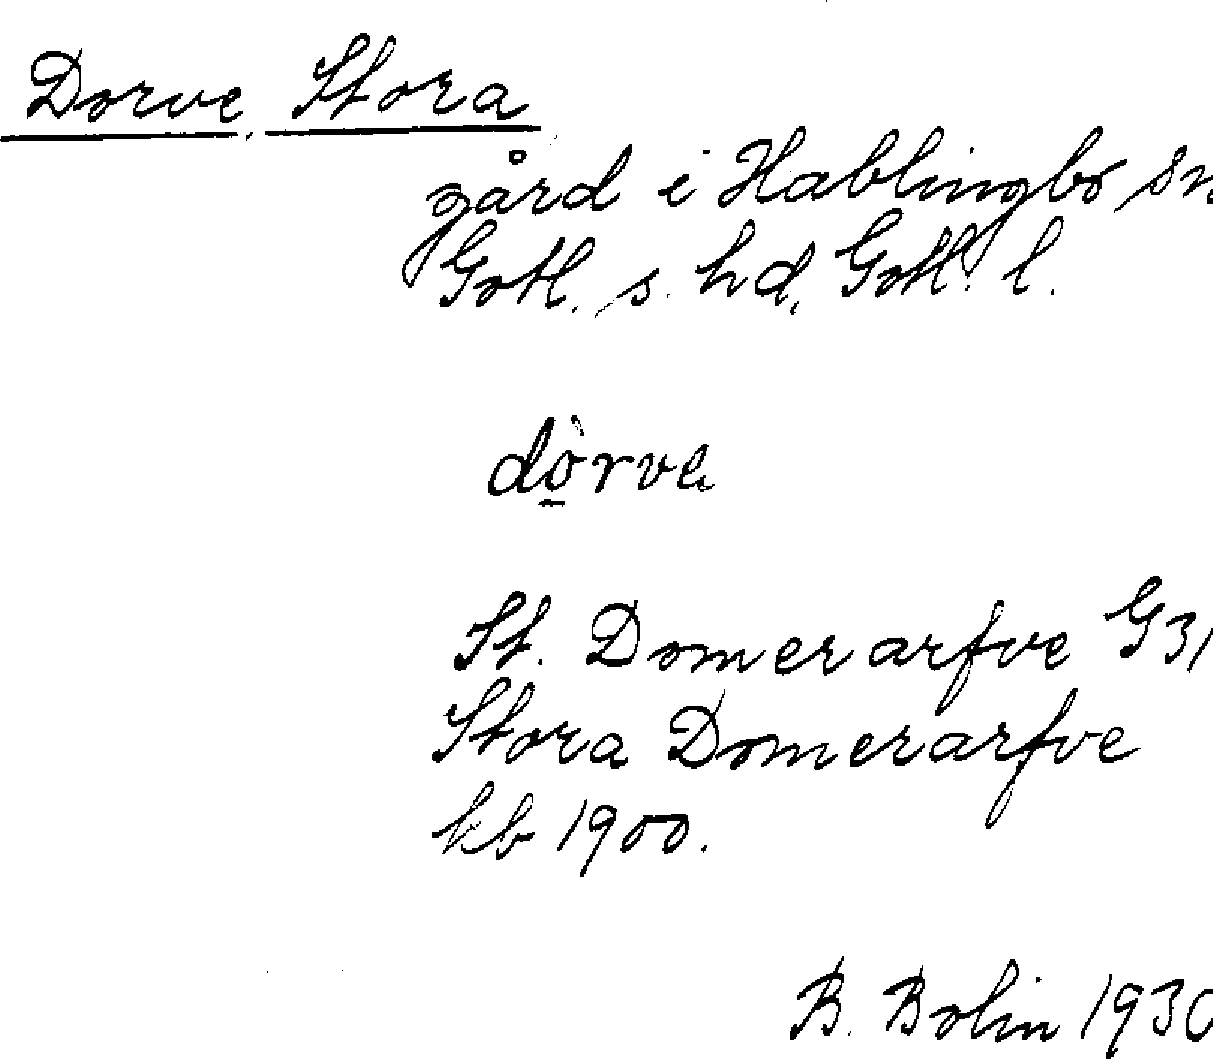 Dorve, Stora
gård i Hablingbo sn
Gotl. s. hd, Gotl. l.
dò̱rve
St. Domerarfve G31
Stora Domerarfve
kb 1900.
B. Bolin 1930